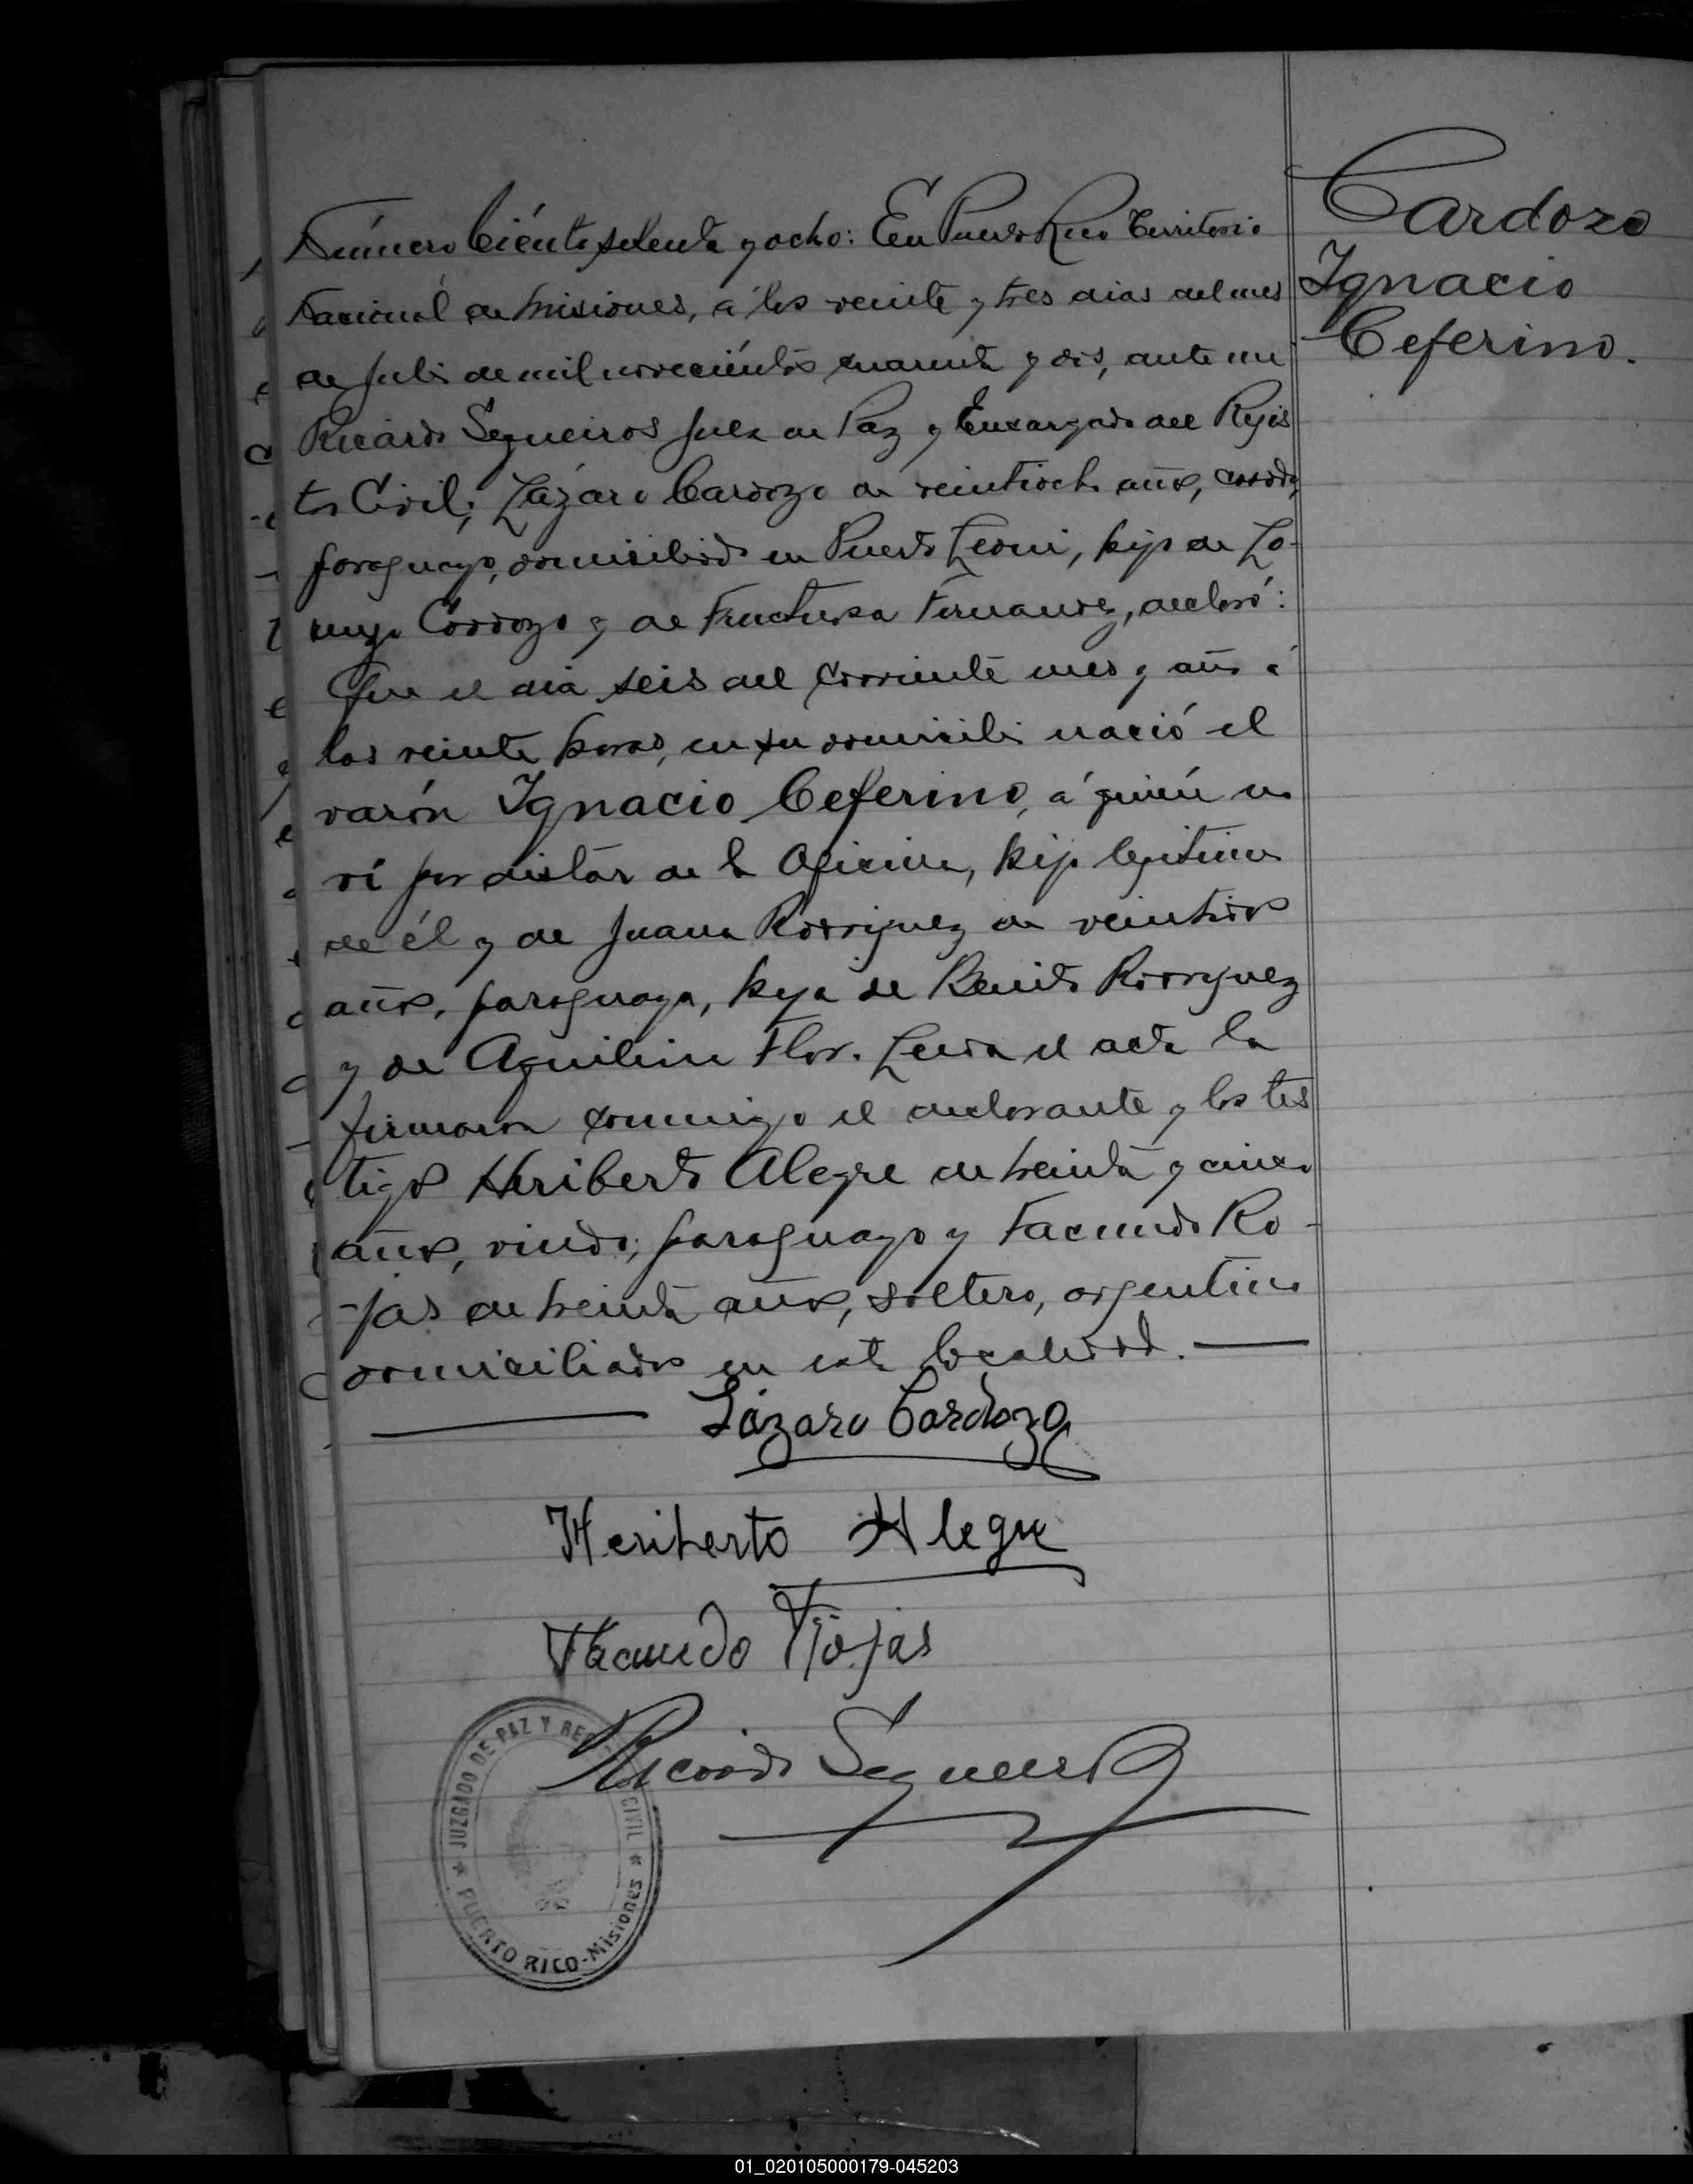 Cardozo
Ignacio
Ceferino.
Número Ciénto setenta y ocho: En Puerto Rico Territorio
Nacionál de Misiones, á los veinte y tres dias del mes
de Julio de mil noveciéntos cuarenta y dos, ante mi
Ricardo Segueiros Juez de Paz y Encargado del Rejis
tro Civil; Lázaro Cardozo de veintiocho años, casado,
paraguayo, domiciliado en Puerto Leoni, hijo de Lo-
Cardozo y de Fructuosa Fernandez, declaró:
Que el dia seis del corriente mes y año á
las veinte horas, en su domicilio nació el
varón Ignacio Ceferino, á quién no
ví por distar de la Oficina, hijo legitimo
de él y de Juana Rodriguez de veintidos
años, paraguaya, hija de Benito Rodriguez
y de Aquilina Flor. Leida el acta la
firmaron conmigo el declarante y los tes
tigos Heriberto Alegre de treinta y cinco
años, viudo, paraguayo y Facundo Ro-
-jas de treinta años, soltero, argentino
domiciliados en esta localidad.
Lázaro Cardozo
Heriberto Alegre
Facundo Rojas
Ricardo Segueiros
JUZGADO DE PAZ Y REG CIVIL
PUERTO RICO-Misiones
01_020105000179-045203